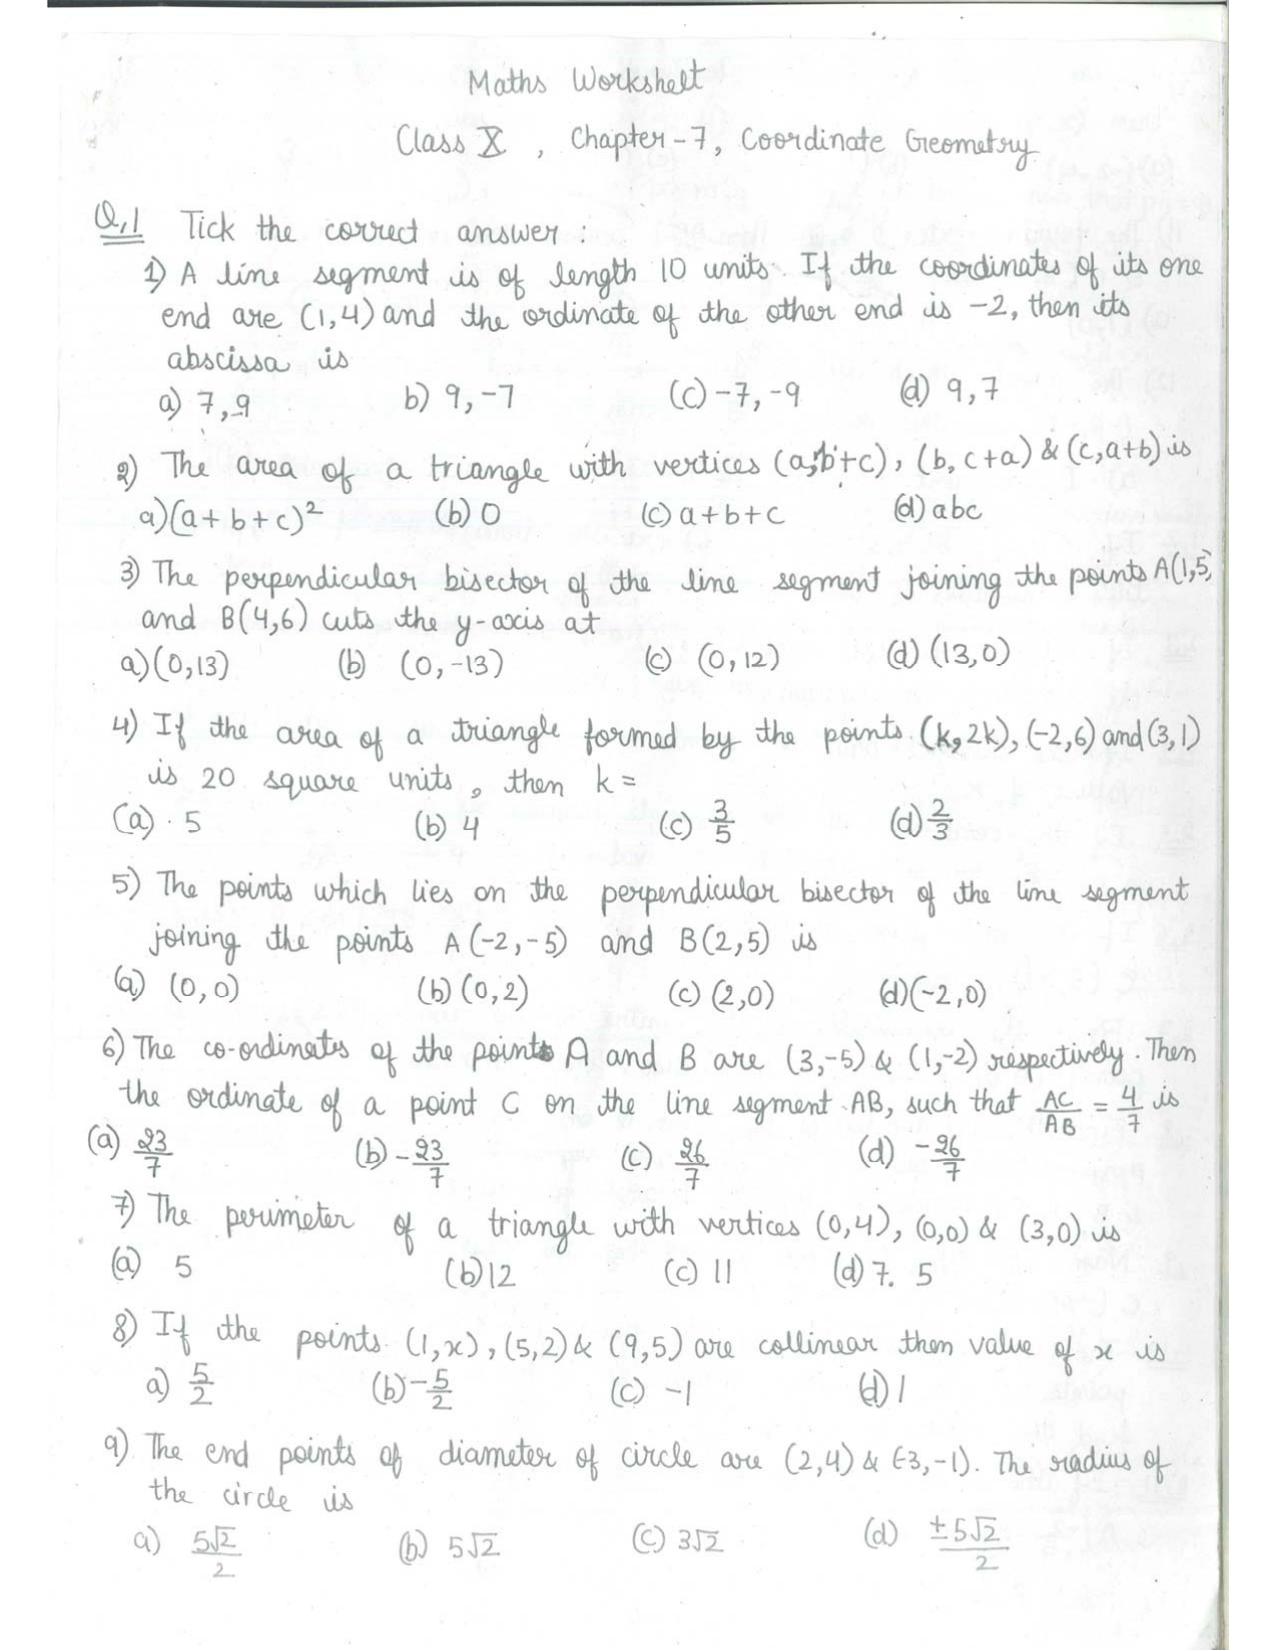 Maths Worksheet
Class X , Chapter-7, Coordinate Geometry
Q.1 Tick the correct answer :
1) A line segment is of length 10 units. If the coordinates of its one
end are (1,4) and the ordinate of the other end is -2, then its
abscissa is
a) 7,9 b) 9,-7 (c) -7,-9 (d) 9,7
2) The area of a triangle with vertices (a,b+c), (b, c+a) & (c,a+b) is
a) (a+b+c)² (b) 0 (c) a+b+c (d) abc
3) The perpendicular bisector of the line segment joining the points A(1,5)
and B(4,6) cuts the y-axis at
a) (0,13) (b) (0,-13) (c) (0,12) (d) (13,0)
4) If the area of a triangle formed by the points (k, 2k), (-2,6) and (3,1)
is 20 square units, then k =
(a) 5 (b) 4 (c) 3/5 (d) 2/3
5) The points which lies on the perpendicular bisector of the line segment
joining the points A(-2,-5) and B(2,5) is
(a) (0,0) (b) (0,2) (c) (2,0) (d) (-2,0)
6) The co-ordinates of the points A and B are (3,-5) & (1,-2) respectively. Then
the ordinate of a point C on the line segment AB, such that AC/AB = 4/7 is
(a) 23/7 (b) -23/7 (c) 26/7 (d) -26/7
7) The perimeter of a triangle with vertices (0,4), (0,0) & (3,0) is
(a) 5 (b) 12 (c) 11 (d) 7.5
8) If the points (1,x), (5,2) & (9,5) are collinear then value of x is
a) 5/2 (b) -5/2 (c) -1 (d) 1
9) The end points of diameter of circle are (2,4) & (-3,-1). The radius of
the circle is
a) 5√2/2 (b) 5√2 (c) 3√2 (d) ±5√2/2